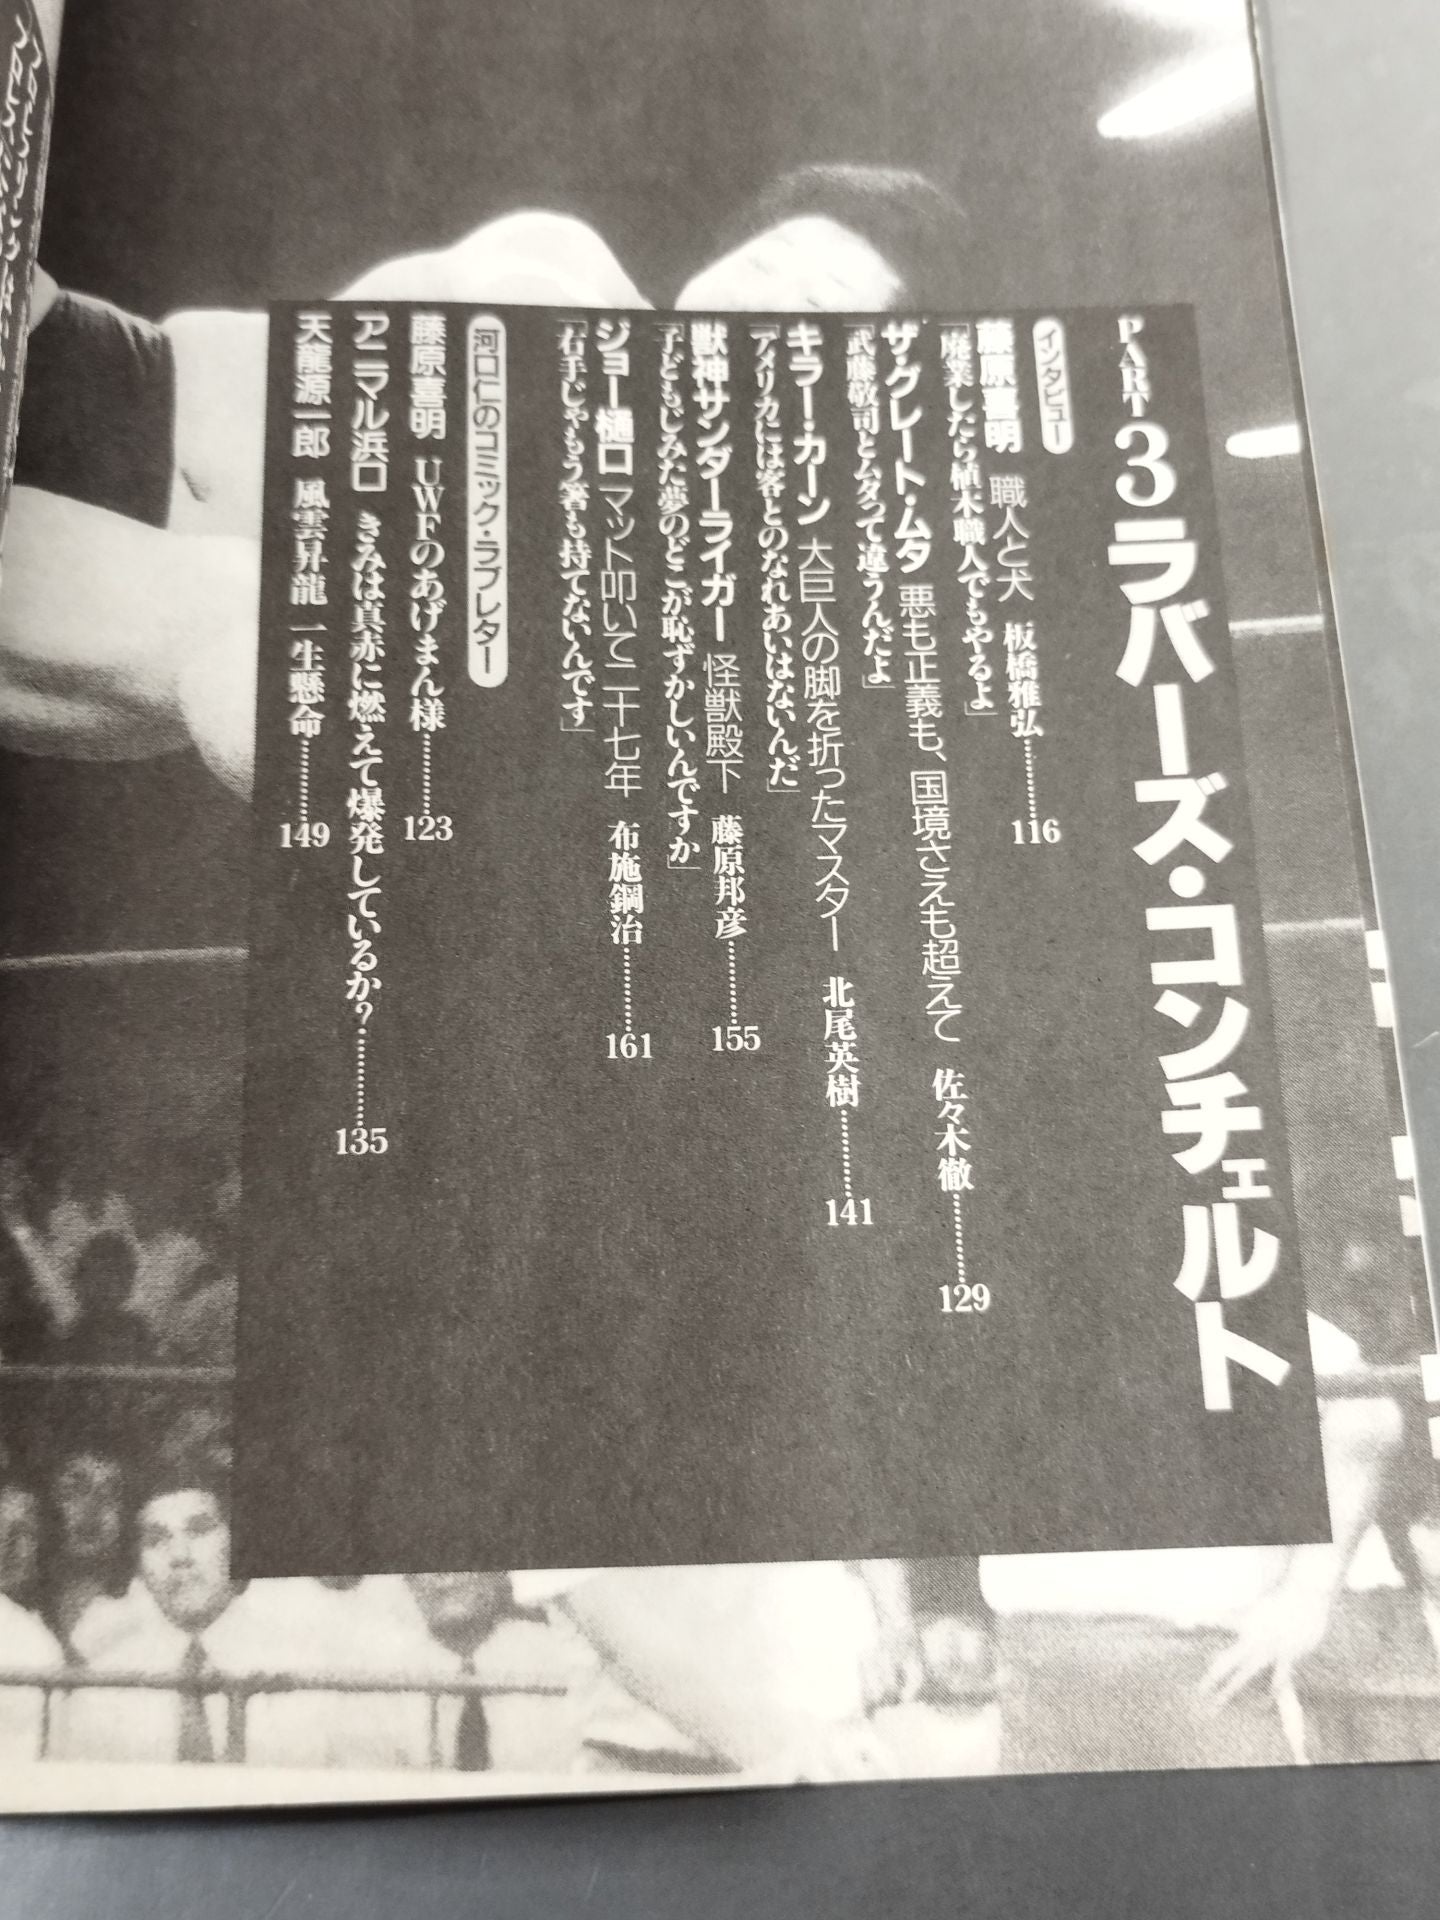 PART 3 ラバーズ・コンチェルト
インタビュー
藤原喜明 職人と犬 板橋雅弘…………116
「廃業したら植木職人でもやるよ」
ザ・グレート・ムタ 悪も正義も、国境さえも超えて 佐々木徹…………129
「武藤敬司とムタって違うんだよ」
キラー・カーン 大巨人の脚を折ったマスター 北尾英樹…………141
「アメリカには客とのなれあいはないんだ」
獣神サンダーライガー 怪獣殿下 藤原邦彦…………155
「子どもじみた夢のどこが恥ずかしいんですか」
ジョー樋口 マット叩いて二十七年 布施鋼治…………161
「右手じゃもう箸も持てないんです」
河口仁のコミック・ラブレター
藤原喜明 UWFのあげまん様…………123
アニマル浜口 きみは真赤に燃えて爆発しているか?…………135
天龍源一郎 風雲昇龍一生懸命…………149